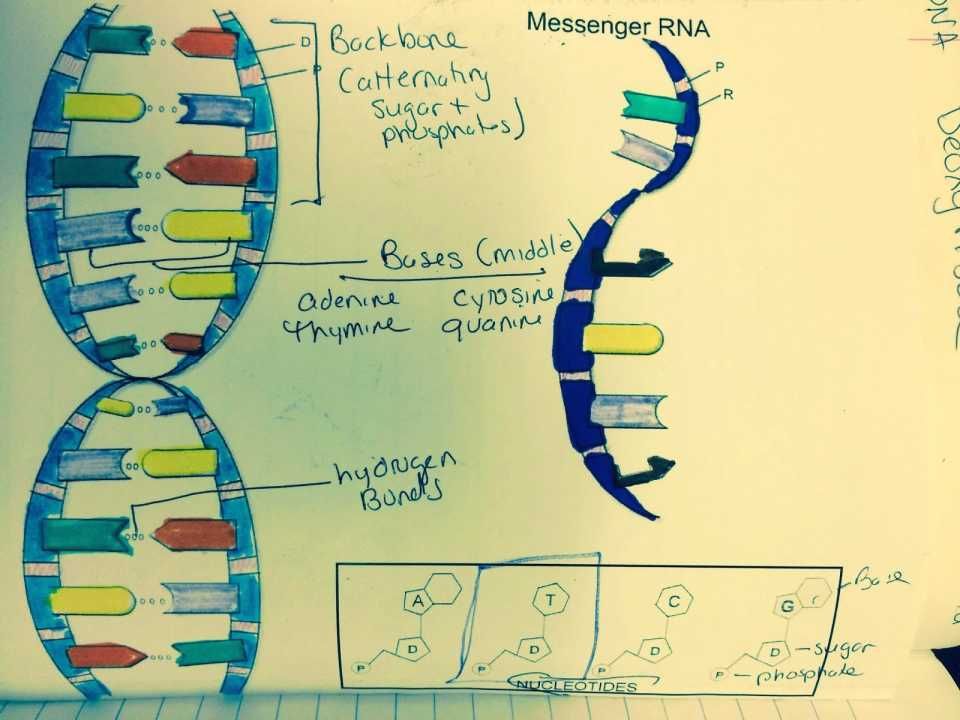 Messenger RNA
D
P
Backbone
(alternating
sugar +
phosphates)
P
R
Bases (middle)
adenine cytosine
thymine guanine
hydrogen
Bonds
A T C G
Base
D D D D - sugar
P P P P - phosphate
NUCLEOTIDES